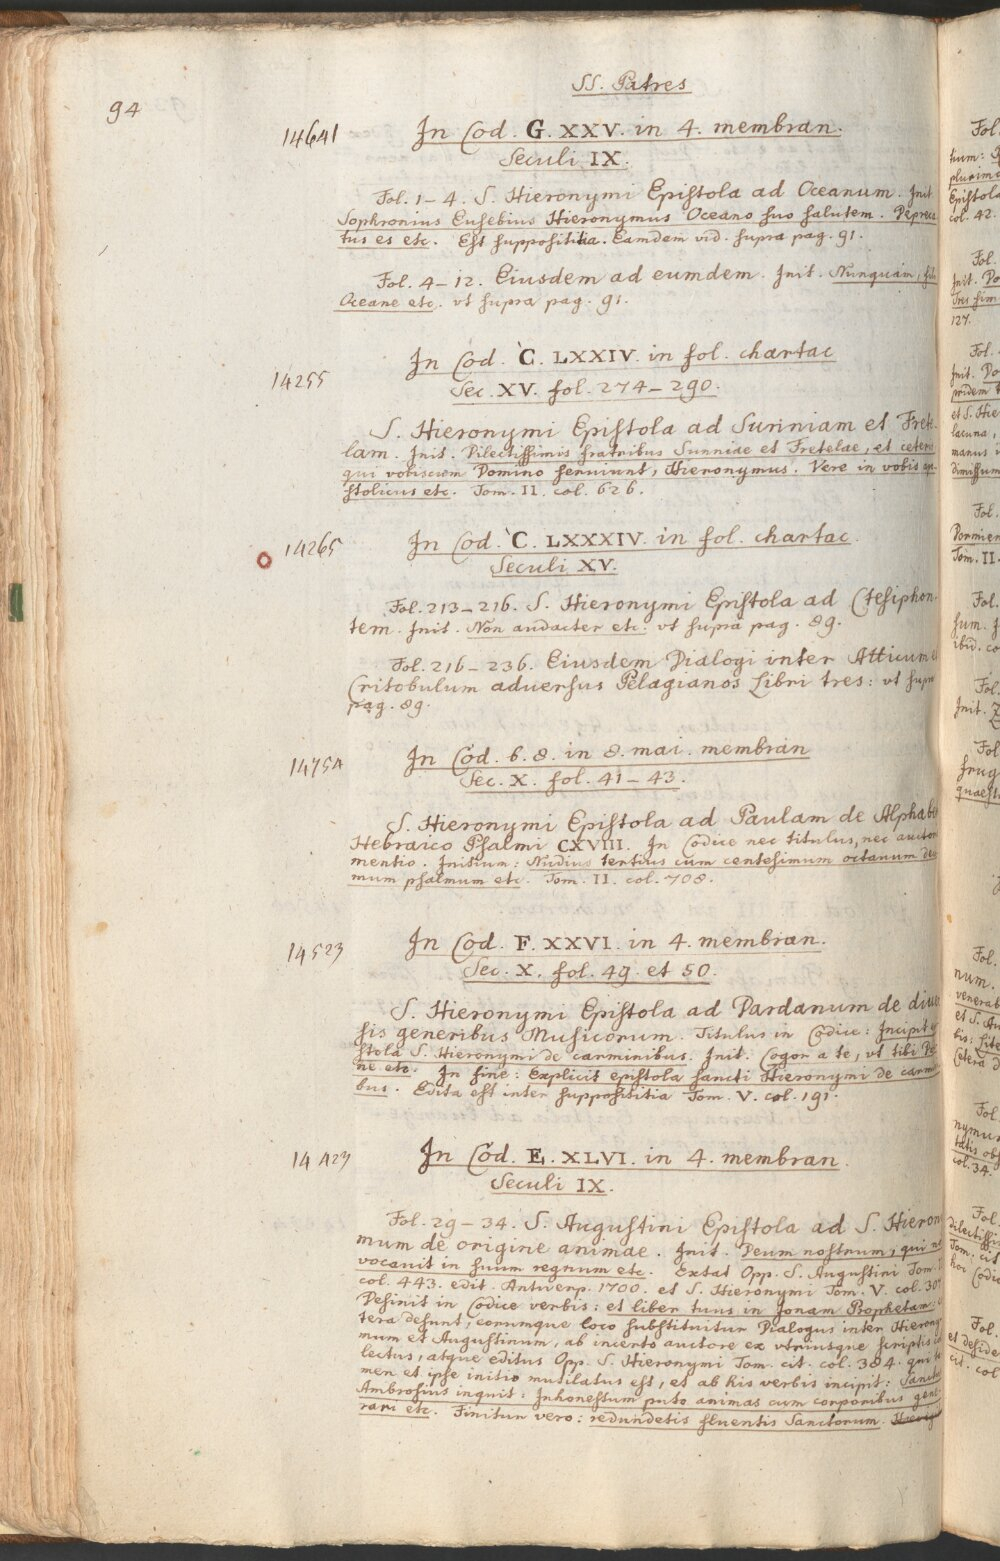 SS. Patres
94
14641
In Cod. G. XXV. in 4. membran.
Seculi IX.
Fol. 1-4. S. Hieronymi Epistola ad Oceanum. Init.
Sophronius Eusebius Hieronymus Oceano suo salutem. Depreca
tus es etc. Est supposititia. Eamdem vid. supra pag. 91.
Fol. 4-12. Eiusdem ad eumdem. Init. Nunquam, fili
Oceane etc. vt supra pag. 91.
14255
In Cod. C. LXXIV. in fol. chartac
Sec. XV. fol. 274-290.
S. Hieronymi Epistola ad Sunniam et Frete-
lam. Init. Dilectissimis fratribus Sunniae et Fretelae, et ceteris
qui vobiscum Domino seruiunt, Hieronymus. Vere in vobis apo
stolicus etc. Tom. II. col. 626.
14265
In Cod. C. LXXXIV. in fol. chartac.
Seculi XV.
Fol. 213-216. S. Hieronymi Epistola ad Ctesiphon-
tem. Init. Non audacter etc. vt supra pag. 89.
Fol. 216-236. Eiusdem Dialogi inter Atticum et
Critobulum aduersus Pelagianos Libri tres: vt supra
pag. 89.
1475A
In Cod. 6. 8. in 8. mai. membran
Sec. X. fol. 41-43.
S. Hieronymi Epistola ad Paulam de Alphabeto
Hebraico Psalmi CXVIII. In Codice nec titulus, nec auctoris
mentio. Initium: Nudius tertius cum centesimum octauum deci
mum psalmum etc. Tom. II. col. 708.
14523
In Cod. F. XXVI. in 4. membran.
Sec. X. fol. 49. et 50.
S. Hieronymi Epistola ad Dardanum de diuer
sis generibus Musicorum. Titulus in Codice: Incipit epi
stola S. Hieronymi de carminibus. Init. Cogor a te, vt tibi Darda
ne etc. In fine: Explicit epistola sancti Hieronymi de carmini
bus. Edita est inter supposititia Tom. V. col. 191.
14423
In Cod. E. XLVI. in 4. membran.
Seculi IX.
Fol. 29-34. S. Augustini Epistola ad S. Hierony
mum de origine animae. Init. Deum nostrum, qui nos
vocauit in suum regnum etc. Extat Opp. S. Augustini Tom. II
col. 443. edit. Antuerp. 1700. et S. Hieronymi Tom. V. col. 307
Desinit in Codice verbis: et liber tuus in Jonam Prophetam: ce
tera desunt, eorumque loco substituitur Dialogus inter Hierony
mum et Augustinum, ab incerto auctore ex vtriusque scriptis col
lectus, atque editus Opp. S. Hieronymi Tom. cit. col. 384. qui ta
men et ipse initio mutilatus est, et ab his verbis incipit: Sanctus
Ambrosius inquit: Inhonestum puto animas cum corporibus gene
rari etc. Finitur vero: redundetis fluentis Sanctorum.